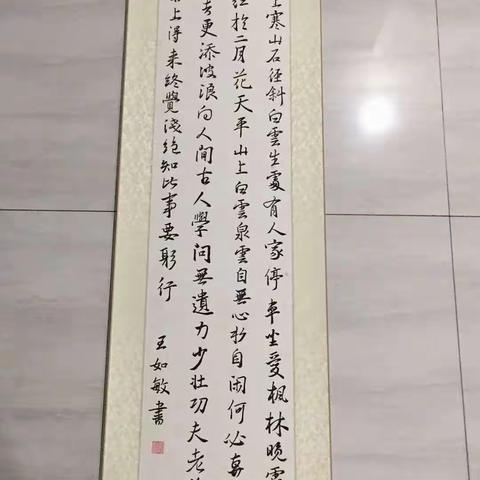 上寒山石径斜白雲生處有人家停車坐爱枫林晚霜
红於二月花天平山上白雲泉雲自無心水自闲何必奔
去更添波浪向人間古人學问無遺力少壮功夫老
上得来终覺浅绝知此事要躬行
王如敏書